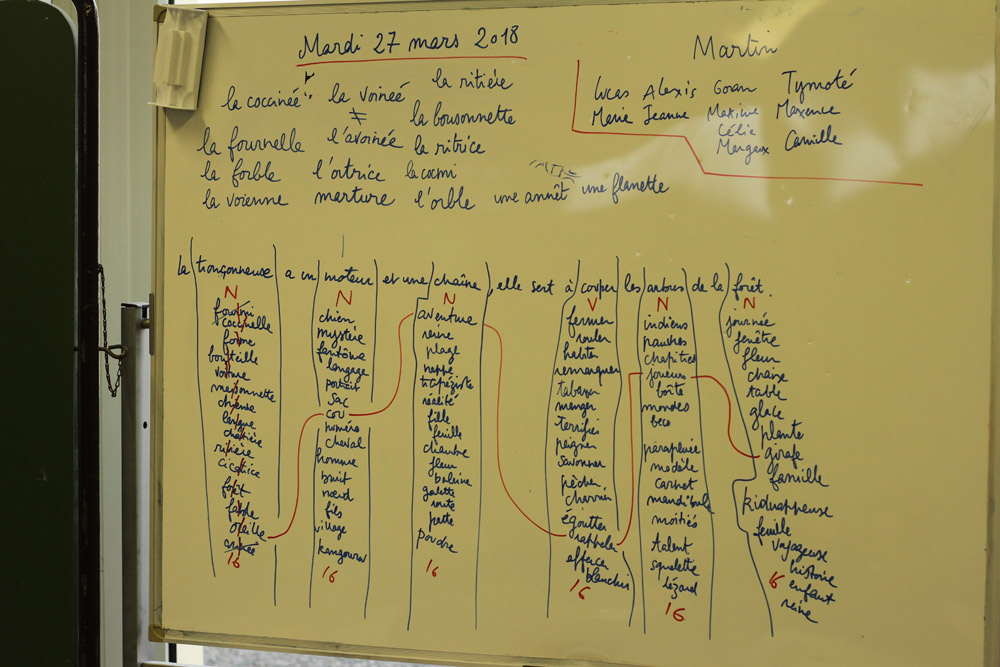 Mardi 27 mars 2018
Martin
Lucas Alexis Goran Tymoté
Marie Jeanne Maxime Maxence
Célie
Margaux Camille
la coccineé la voineé la ritière
≠ la bousonnette
la fournelle l'avoinée la ritrice
la forble l'ortrice la cocmi
la voienne marture l'orble une annêt une flanette
la tronçonneuse a un moteur et une chaîne, elle sert à couper les arbres de la forêt.
N
fourmi
coccinelle
forme
bouteille
voiture
maisonnette
chienne
langue
chatière
rivière
cicatrice
forêt
fable
oreille
année
16
N
chien
mystère
fantôme
langage
pouvoir
sac
cou
numéro
cheval
homme
bruit
nœud
fils
village
kangourou
16
N
aventure
reine
plage
nappe
trapéziste
réalité
fille
feuille
chambre
fleur
baleine
galette
route
patte
poudre
16
V
fermer
rouler
habiter
remarquer
tabasser
manger
terrifier
peigner
savonner
pêcher
égoutter
rappeler
effacer
blanchir
16
N
indiens
chapitres
joueurs
boîte
mondes
becs
parapluie
modèle
carnet
mandibule
moitiés
talent
squelette
lézard
16
N
journée
fenêtre
fleur
chaise
table
glace
plante
girafe
famille
kidnappeuse
feuille
voyageuse
histoire
16 enfant
reine